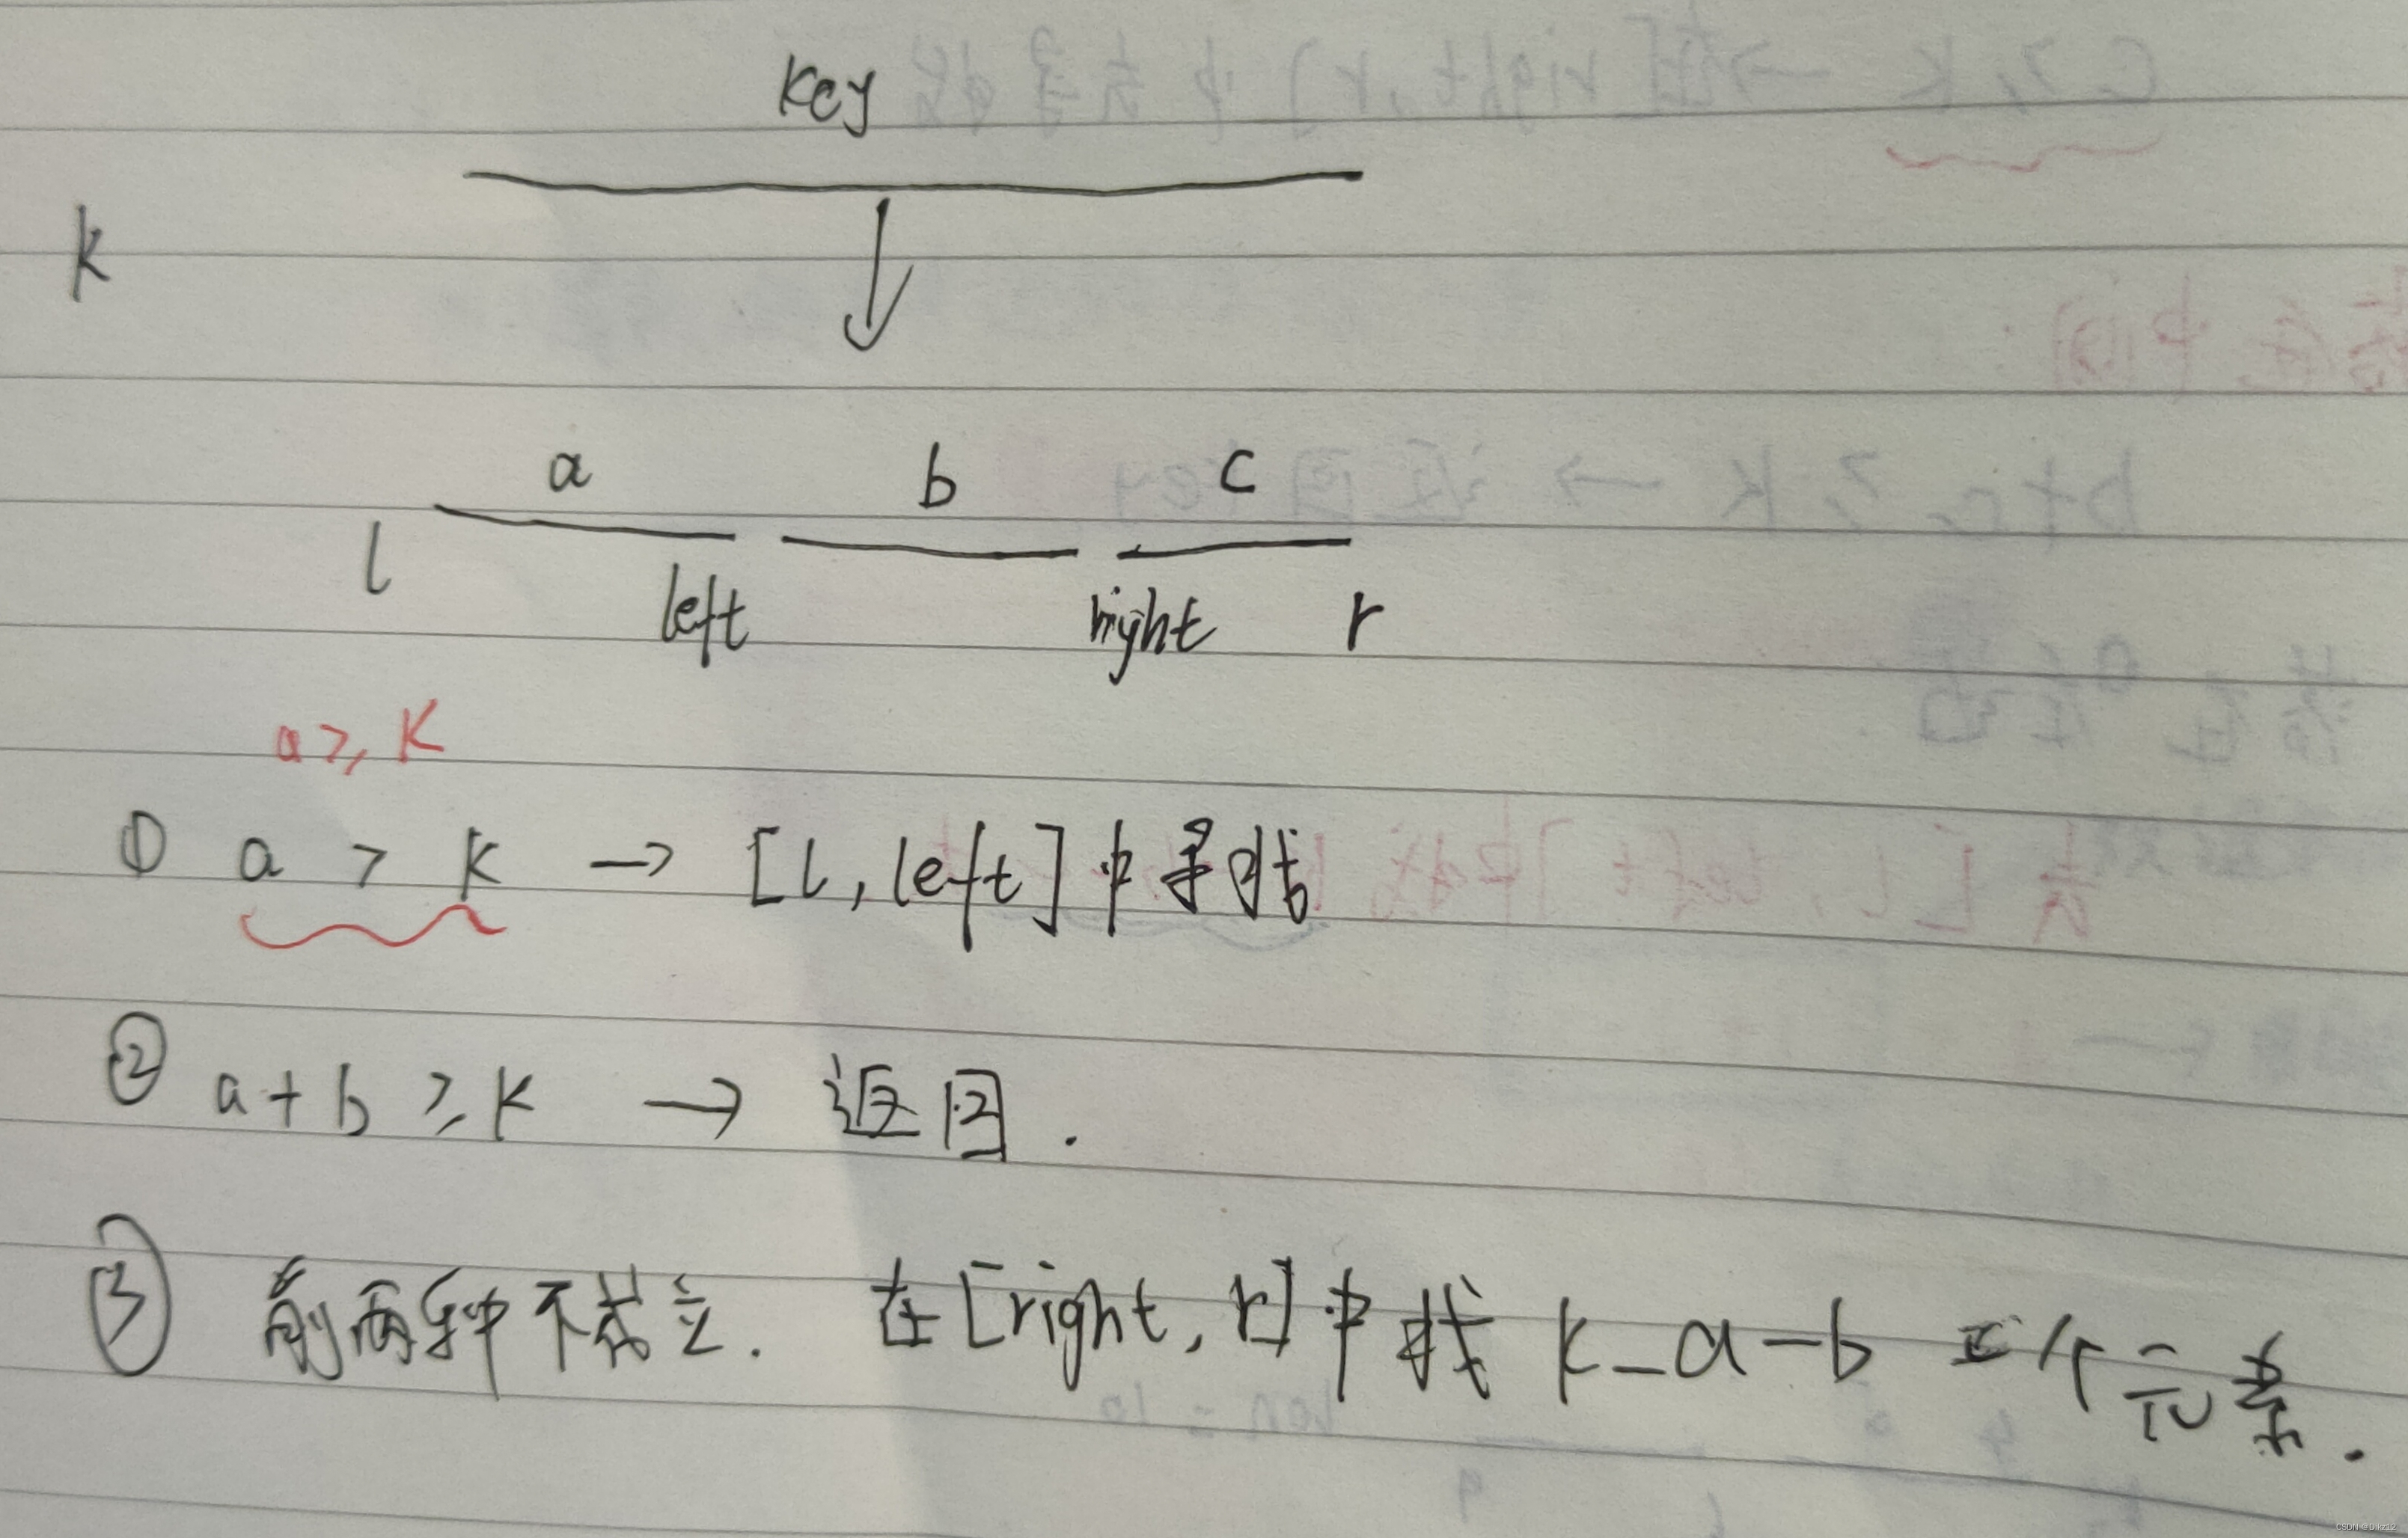 key
k
a b c
l left right r
a ≥ K
① a > k → [l, left] 中寻找
② a + b ≥ k → 返回.
③ 前两种不成立. 在[right, r]中找 k-a-b 个元素.
CSDN @Djkz12